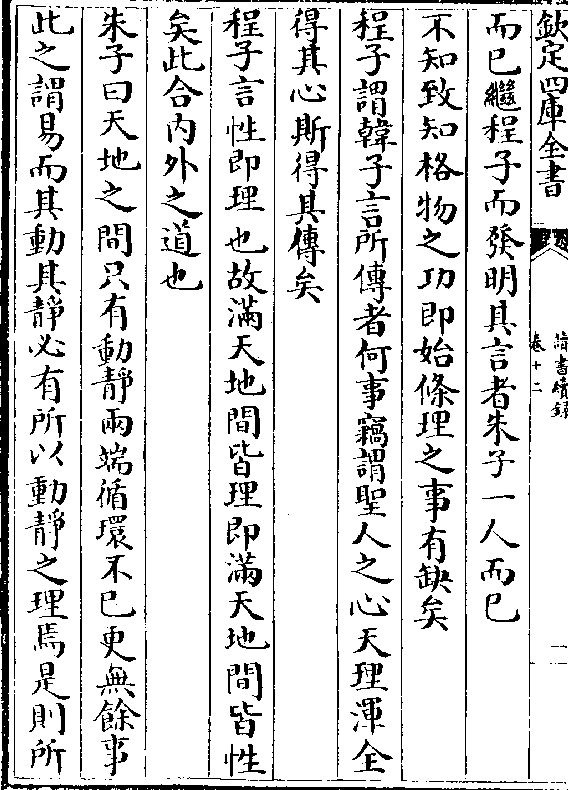 欽定四庫全書
讀書續錄
卷十二
一
而已繼程子而發明其言者朱子一人而已
不知致知格物之功即始條理之事有缺矣
程子謂韓子言所傳者何事竊謂聖人之心天理渾全
得其心斯得其傳矣
程子言性即理也故滿天地間皆理即滿天地間皆性
矣此合內外之道也
朱子曰天地之間只有動靜兩端循環不已更無餘事
此之謂易而其動其靜必有所以動靜之理焉是則所